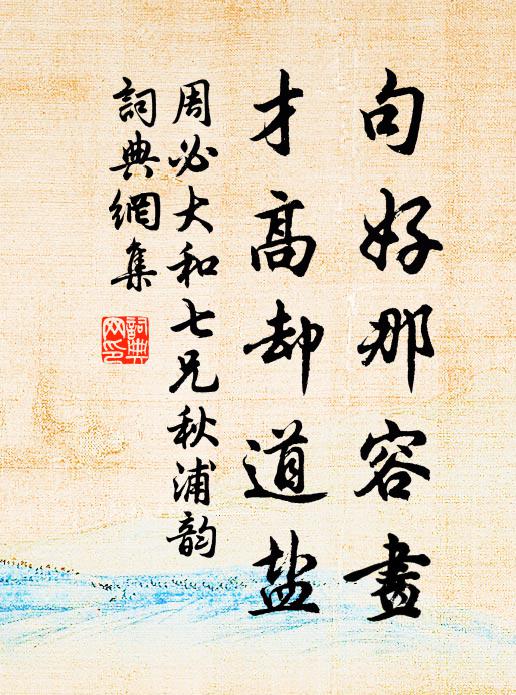 句好那容畫
才高却道盐
周必大和七兄秋浦韵
詞典網集
詞典網印